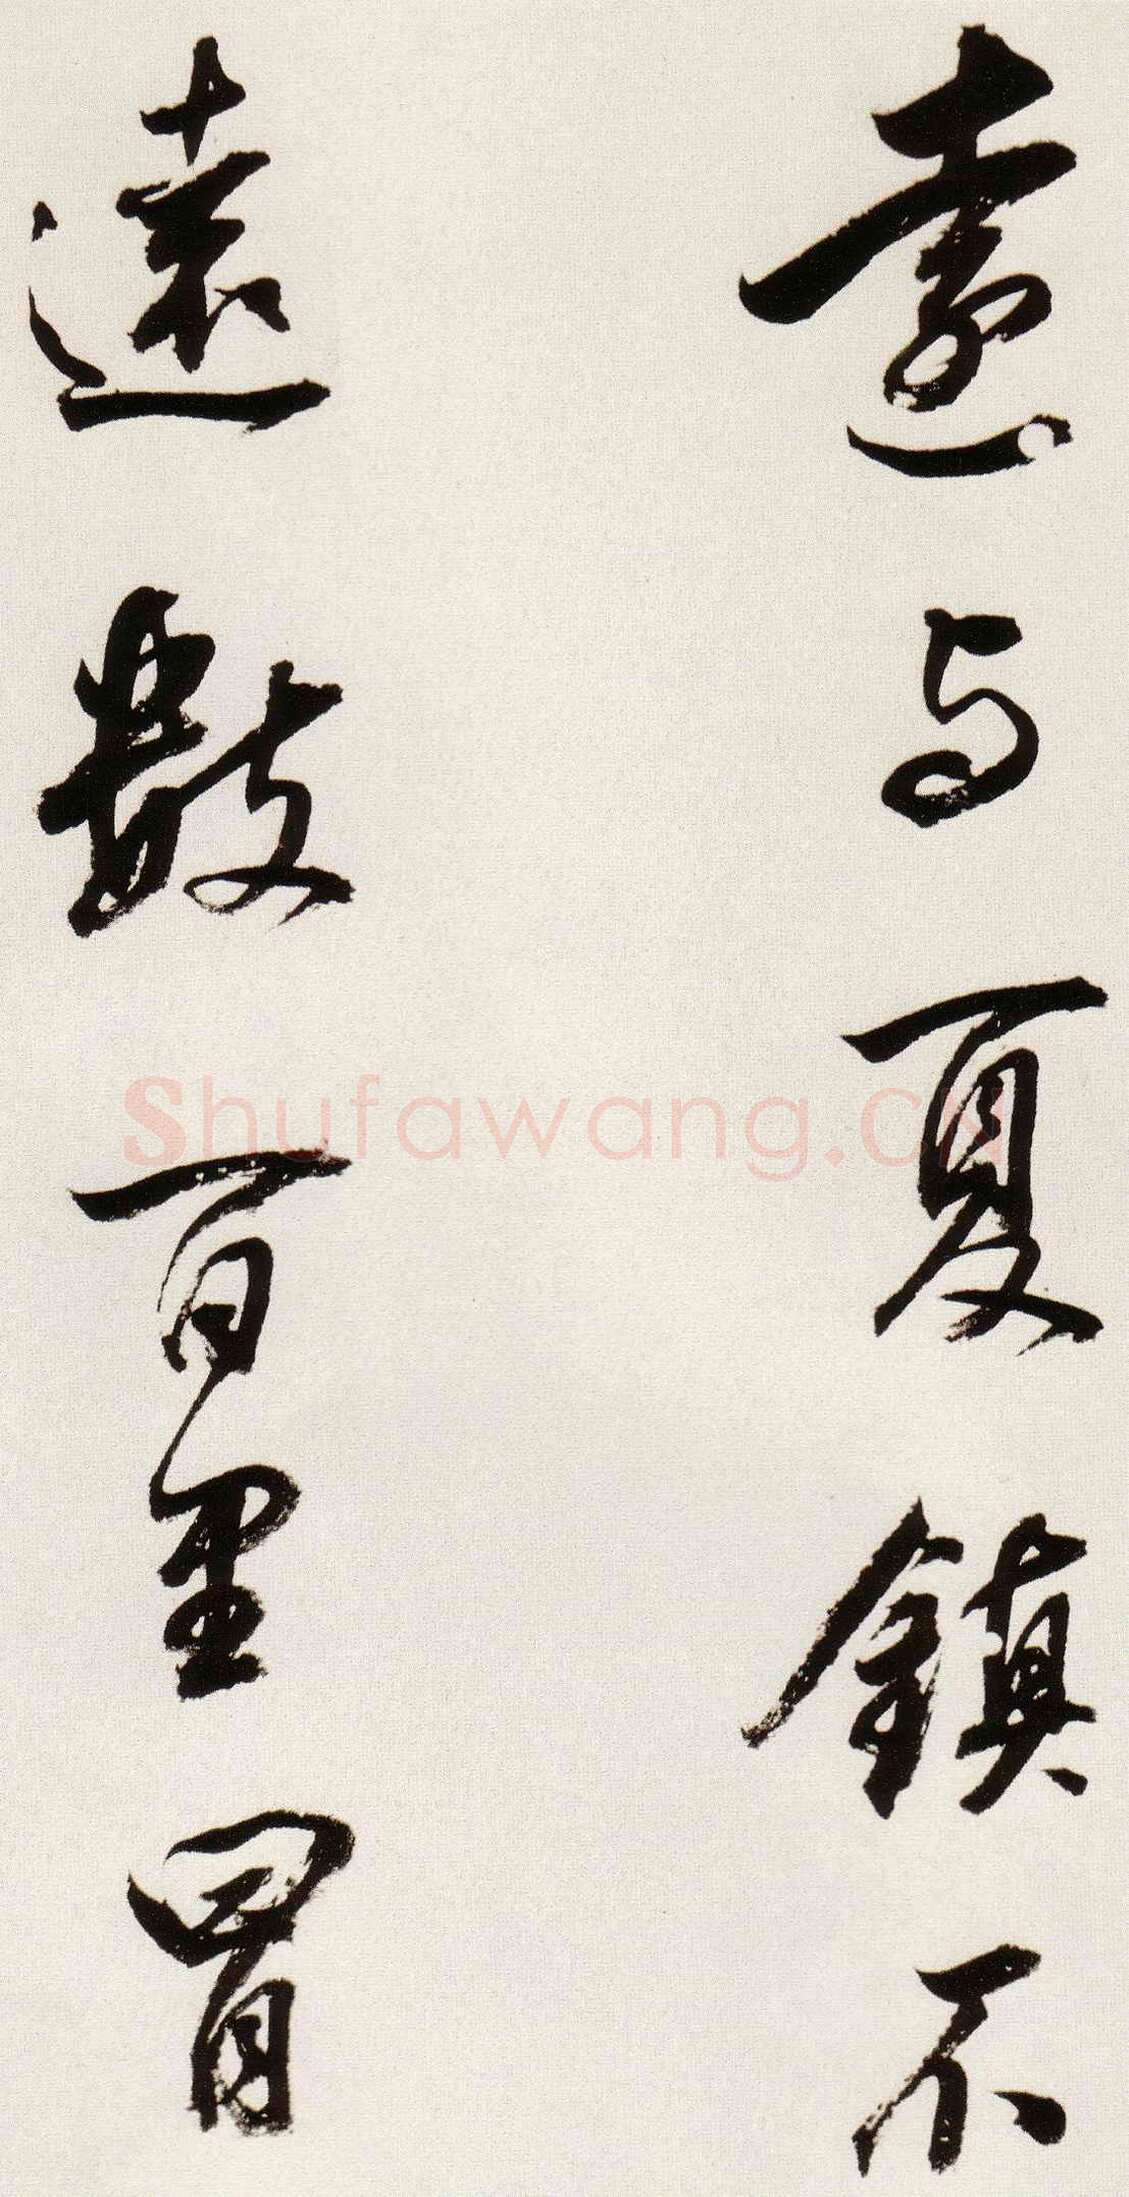 与夏鎮不
遠數百里冒
Shufawang.cn